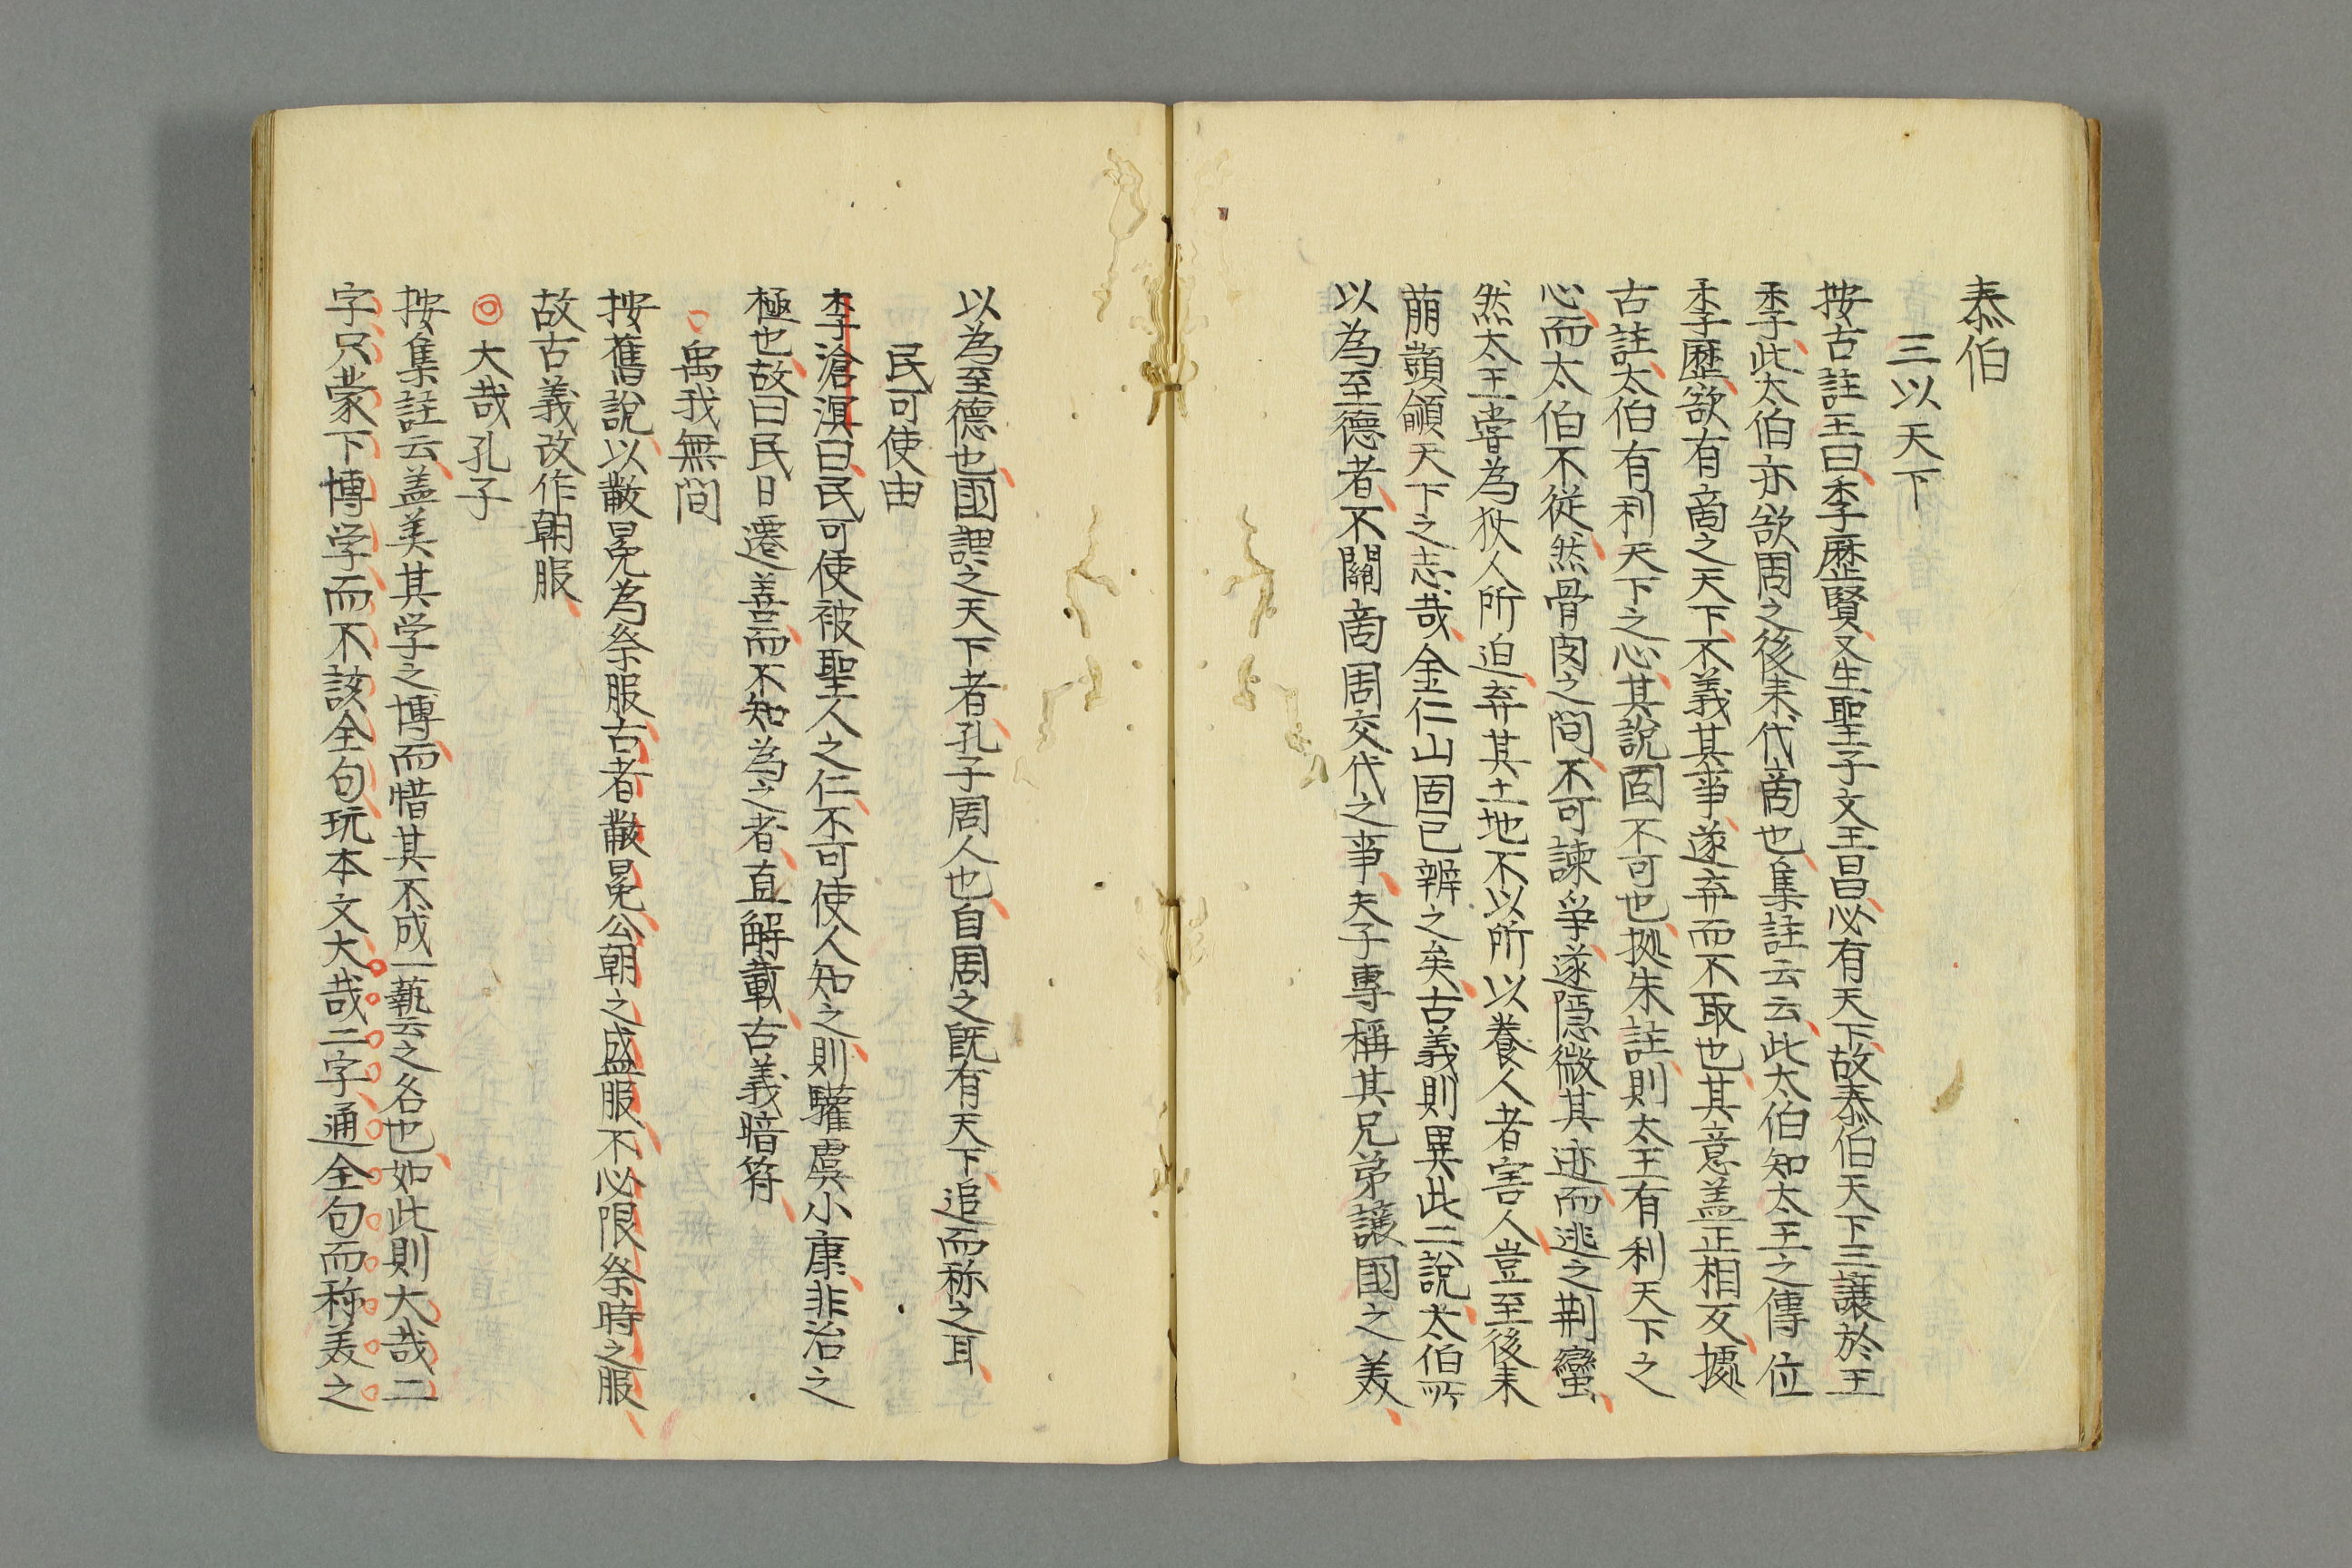 泰伯
三以天下
按古註王曰季歴賢又生聖子文王昌必有天下故泰伯天下三讓於王
季此太伯亦欲周之後来代商也集註云云此太伯知太王之傳位
季歴欲有商之天下不義其事遂弃而不取也其意盖正相反據
古註太伯有利天下之心其說固不可也拠朱註則太王有利天下之
心而太伯不従然骨肉之間不可諫爭遂隠微其迹而逃之荆蠻
然太王嘗為狄人所迫弃其土地不以所以養人者害人豈至後来
萠顗顉天下之志哉金仁山固已辨之矣古義則異此二說太伯所
以為至德者不關商周交代之事夫子專稱其兄弟讓國之美
以為至德也國謂之天下者孔子周人也自周之既有天下追而称之耳
民可使由
李滄溟曰民可使被聖人之仁不可使人知之則驩虞小康非治之
極也故曰民日遷善而不知為之者直解載古義暗符
禹我無間
按舊說以黻冕為祭服古者黻冕公朝之盛服不必限祭時之服
故古義改作朝服
◎大哉孔子
按集註云盖美其学之博而惜其不成一藝云之名也如此則大哉二
字只蒙下博学而不該全句玩本文大哉二字通全句而称美之